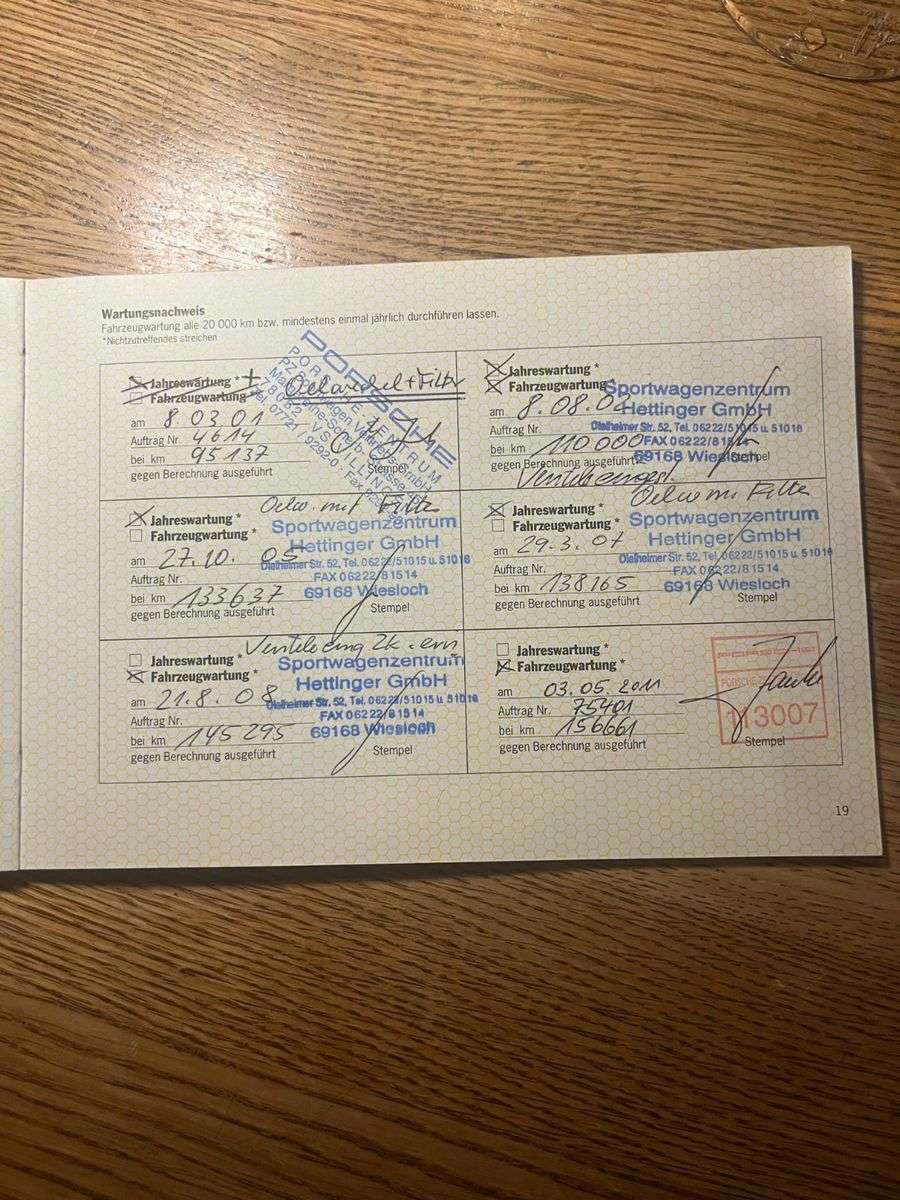 Wartungsnachweis
Fahrzeugwartung alle 20 000 km bzw. mindestens einmal jährlich durchführen lassen.
*Nichtzutreffendes streichen
Jahreswartung * + Oelwechsel + Filter
Fahrzeugwartung *
am 8 03 01
Auftrag Nr. 4614
bei km 95137
gegen Berechnung ausgeführt
Stempel
PORSCHE
PORSCHE-ZENTRUM
78052 VS-VILLINGEN
Jahreswartung *
Fahrzeugwartung
am 8.08.02
Auftrag Nr.
bei km 110000
gegen Berechnung ausgeführt
Stempel
Sportwagenzentrum
Hettinger GmbH
Dielheimer Str. 52, Tel. 06222/51015 u. 51016
FAX 06222/81514
69168 Wiesloch
Oelw. mit Filter
Jahreswartung *
Fahrzeugwartung *
am 27.10. 05
Auftrag Nr.
bei km 133637
gegen Berechnung ausgeführt
Stempel
Sportwagenzentrum
Hettinger GmbH
Dielheimer Str. 52, Tel. 06222/51015 u. 51016
FAX 06222/81514
69168 Wiesloch
Oelw mi Filter
Jahreswartung *
Fahrzeugwartung *
am 29.3.07
Auftrag Nr.
bei km 138165
gegen Berechnung ausgeführt
Stempel
Sportwagenzentrum
Hettinger GmbH
Dielheimer Str. 52, Tel. 06222/51015 u. 51016
FAX 06222/81514
69168 Wiesloch
Jahreswartung *
Fahrzeugwartung *
am 21.8.08
Auftrag Nr.
bei km 145295
gegen Berechnung ausgeführt
Stempel
Sportwagenzentrum
Hettinger GmbH
Dielheimer Str. 52, Tel. 06222/51015 u. 51016
FAX 06222/81514
69168 Wiesloch
Jahreswartung *
Fahrzeugwartung *
am 03.05.2011
Auftrag Nr. 75401
bei km 156661
gegen Berechnung ausgeführt
Stempel
PORSCHE
113007
19